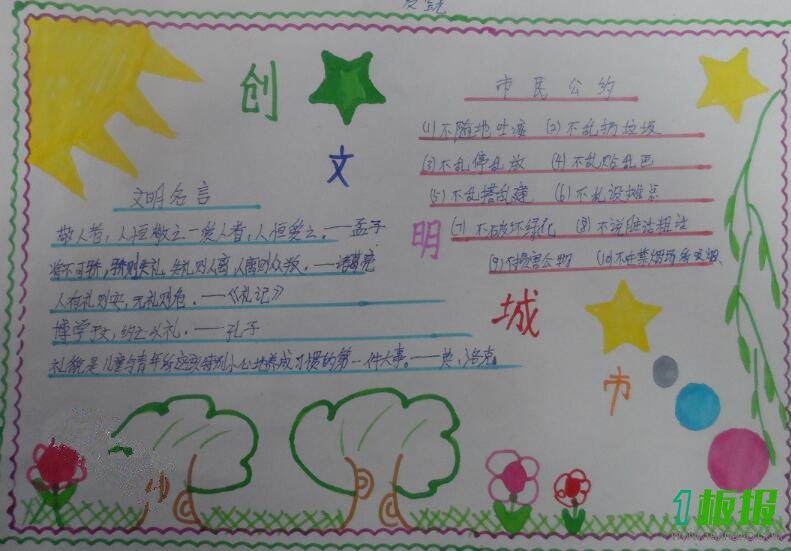 创
文
明
城
市
市民公约
(1) 不随地吐痰 (2) 不乱扔垃圾
(3) 不乱停乱放 (4) 不乱贴乱画
(5) 不乱搭乱建 (6) 不乱设摊点
(7) 不破坏绿化 (8) 不说脏话粗话
(9) 不损害公物 (10) 不在禁烟场所吸烟、
文明名言
敬人者，人恒敬之－爱人者，人恒爱之，——孟子
将不可骄，骄则失礼，失礼则人离，人离则众叛．——诸葛亮
人有礼则安，无礼则危．——《礼记》
博学于文，约之以礼．——孔子
礼貌是儿童与青年所应该特别小心地养成习惯的第一件大事。——英、洛克。
1板报